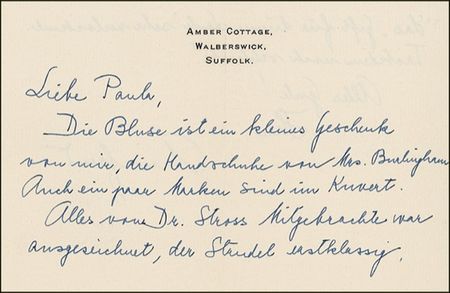 AMBER COTTAGE,
WALBERSWICK,
SUFFOLK.
Liebe Paula,
Die Bluse ist ein kleines Geschenk
von mir, die Handschuhe von Mrs. Burlingham
Auch ein paar Marken sind im Kuvert.
Alles von Dr. Stross Mitgebrachte war
ausgezeichnet, der Strudel erstklassig.